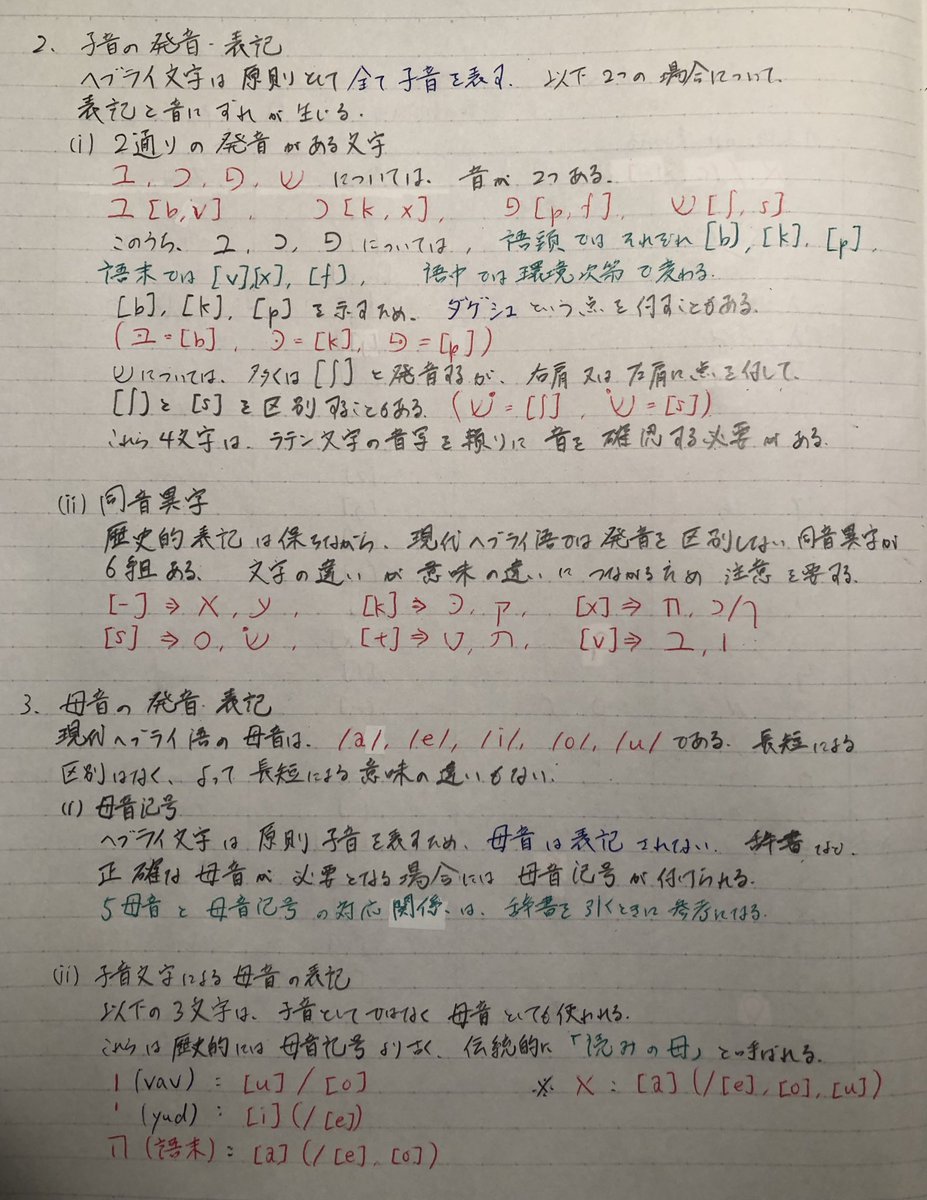 2. 子音の発音・表記
ヘブライ文字は原則として全て子音を表す. 以下2つの場合について.
表記と音にずれが生じる.
(i) 2通りの発音がある文字
ב, כ, פ, ש については. 音が2つある.
ב [b,v], כ [k,x], פ [p,f], ש [ʃ,s]
このうち. ב, כ, פ については, 語頭ではそれぞれ [b], [k], [p],
語末では [v],[x], [f], 語中では環境次第で変わる.
[b], [k], [p] を示すため、ダゲシュという点を付すことがある.
(בּ=[b], כּ=[k], פּ=[p])
שについては、多くは [ʃ] と発音するが、右肩又は左肩に点を付して、
[ʃ] と [s] を区別することもある. (שׁ=[ʃ], שׂ=[s])
これら4文字は、ラテン文字の音写を頼りに音を確認する必要がある.
(ii) 同音異字
歴史的表記は保ちながら、現代ヘブライ語では発音を区別しない同音異字が
6組ある. 文字の違いが意味の違いにつながるため注意を要する.
[-] ⇒ א, ע, [k] ⇒ כ, ק, [x] ⇒ ח, כ/ך
[s] ⇒ ס, שׂ, [t] ⇒ ט, ת, [v] ⇒ ב, ו
3. 母音の発音・表記
現代ヘブライ語の母音は、/a/, /e/, /i/, /o/, /u/ である. 長短による
区別はなく、よって長短による意味の違いもない.
(i) 母音記号
ヘブライ文字は原則子音を表すため、母音は表記されない. 辞書など.
正確な母音が必要となる場合には母音記号が付けられる.
5母音と母音記号の対応関係は、辞書を引くときに参考になる.
(ii) 子音文字による母音の表記
以下の3文字は、子音としてではなく母音としても使われる.
これらは歴史的には母音記号より古く、伝統的に「読みの母」と呼ばれる.
ו (vav) : [u] / [o] ※ א : [a] (/ [e], [o], [u])
י (yud) : [i] (/ [e])
ה (語末) : [a] (/ [e], [o])